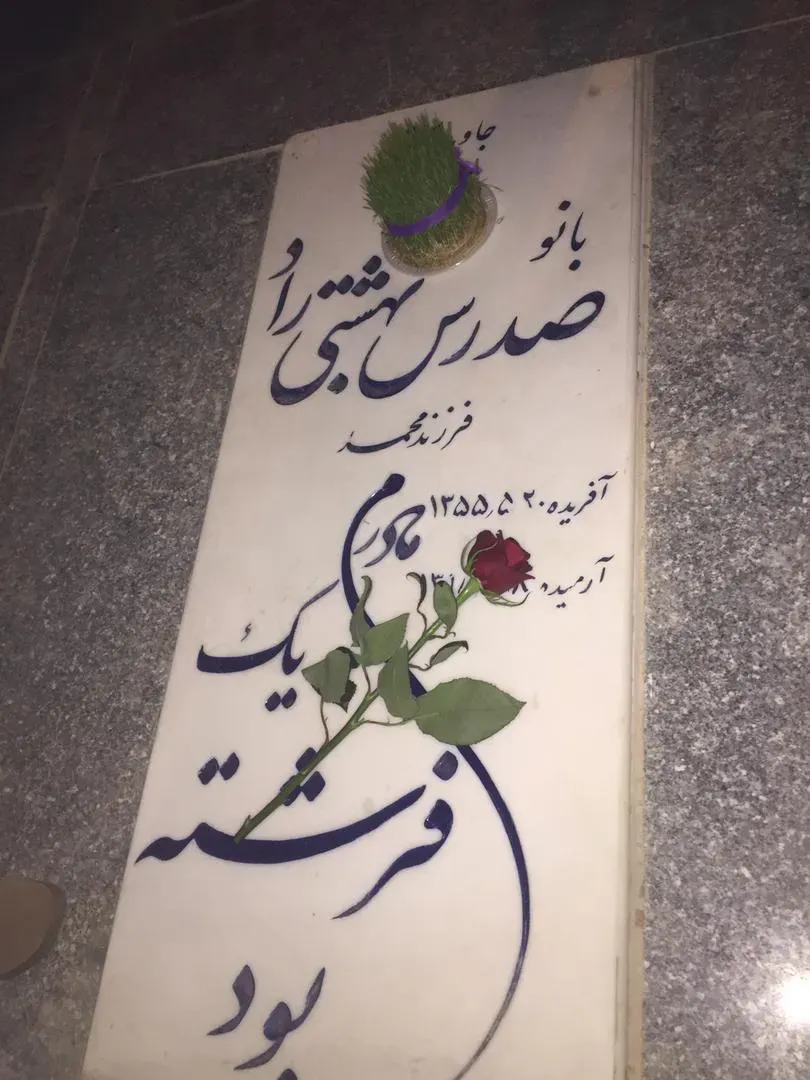 بانو
صدرس بهشتی راد
فرزند محمد
آفریده ۲۰/۵/۱۳۵۵
آرمیده
مادرم
یک
فرشته
بود